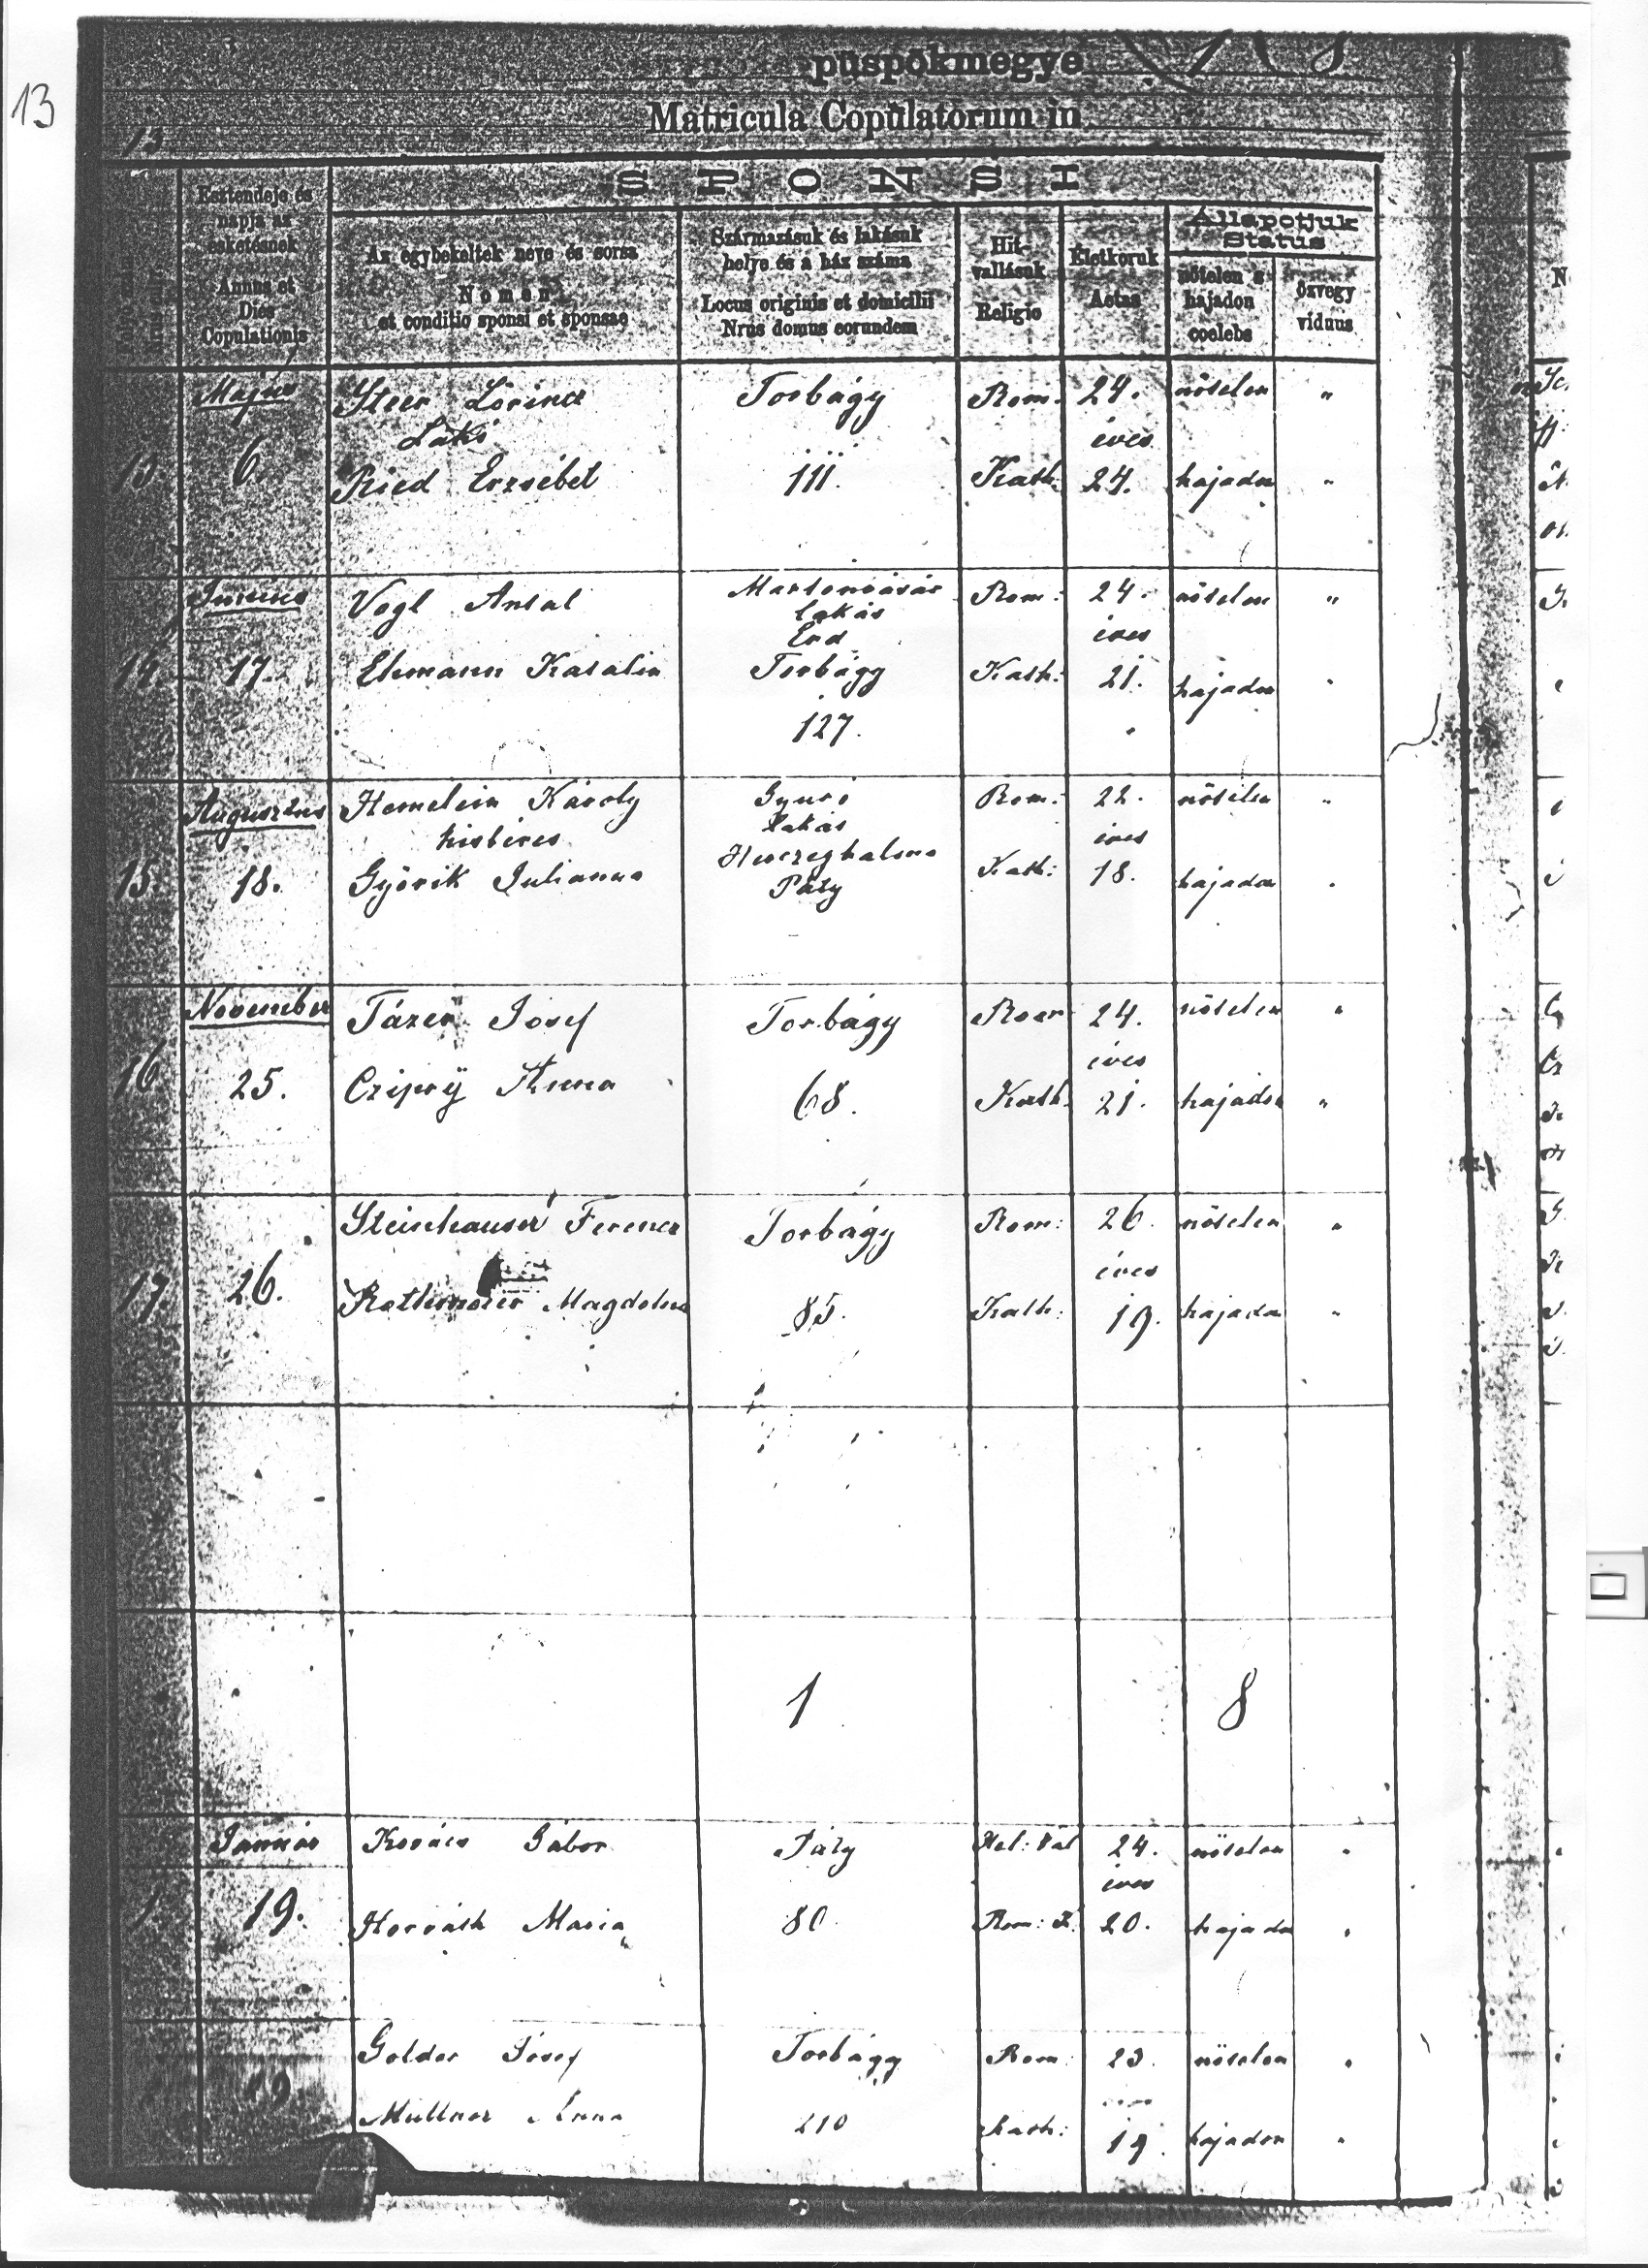 13
püspökmegye
Matricula Copulatorum in
13
SPONSI
Esztendeje és napja az esketésnek
Annus et Dies Copulationis
Az egybekeltek neve és sorsa
Nomen et conditio sponsi et sponsae
Származásuk és lakásuk helye és a ház száma
Locus originis et domicilii Nrus domus eorundem
Hitvallásuk
Religio
Életkoruk
Aetas
Állapotjuk
Status
nőtelen s hajadon
coelebs
özvegy
viduus
Május Steer Lörincz Torbágy Rom: 24. nőtelen "
Laki éves
13 6. Ried Erzsébet 111. Kath: 24. hajadon "
Junius Vogl Antal Martonvásár Rom: 24. nőtelen "
lakás
Érd éves
14. 17. Ehmann Katalin Torbágy Kath: 21. hajadon "
127.
Augusztus Hemelein Károly Gyuró Rom: 22. nőtelen "
kisbéres lakás éves
Herczeghalma
15. 18. Györik Julianna Páty Kath: 18. hajadon "
November Tázer József Torbágy Rom 24. nőtelen "
éves
16. 25. Anna 68. Kath. 21. hajadon "
Steinhauser Ferencz Torbágy Rom: 26. nőtelen "
éves
17. 26. Magdolna 85. Kath: 19. hajadon "
1 8
Január Kovács Gábor Páty Hel: Val 24. nőtelen "
éves
1 19. Horváth Mária 80. Rom: K. 20. hajadon "
Golder József Torbágy Rom: 23. nőtelen "
19. Müllner Anna 210 Kath: 19. hajadon "